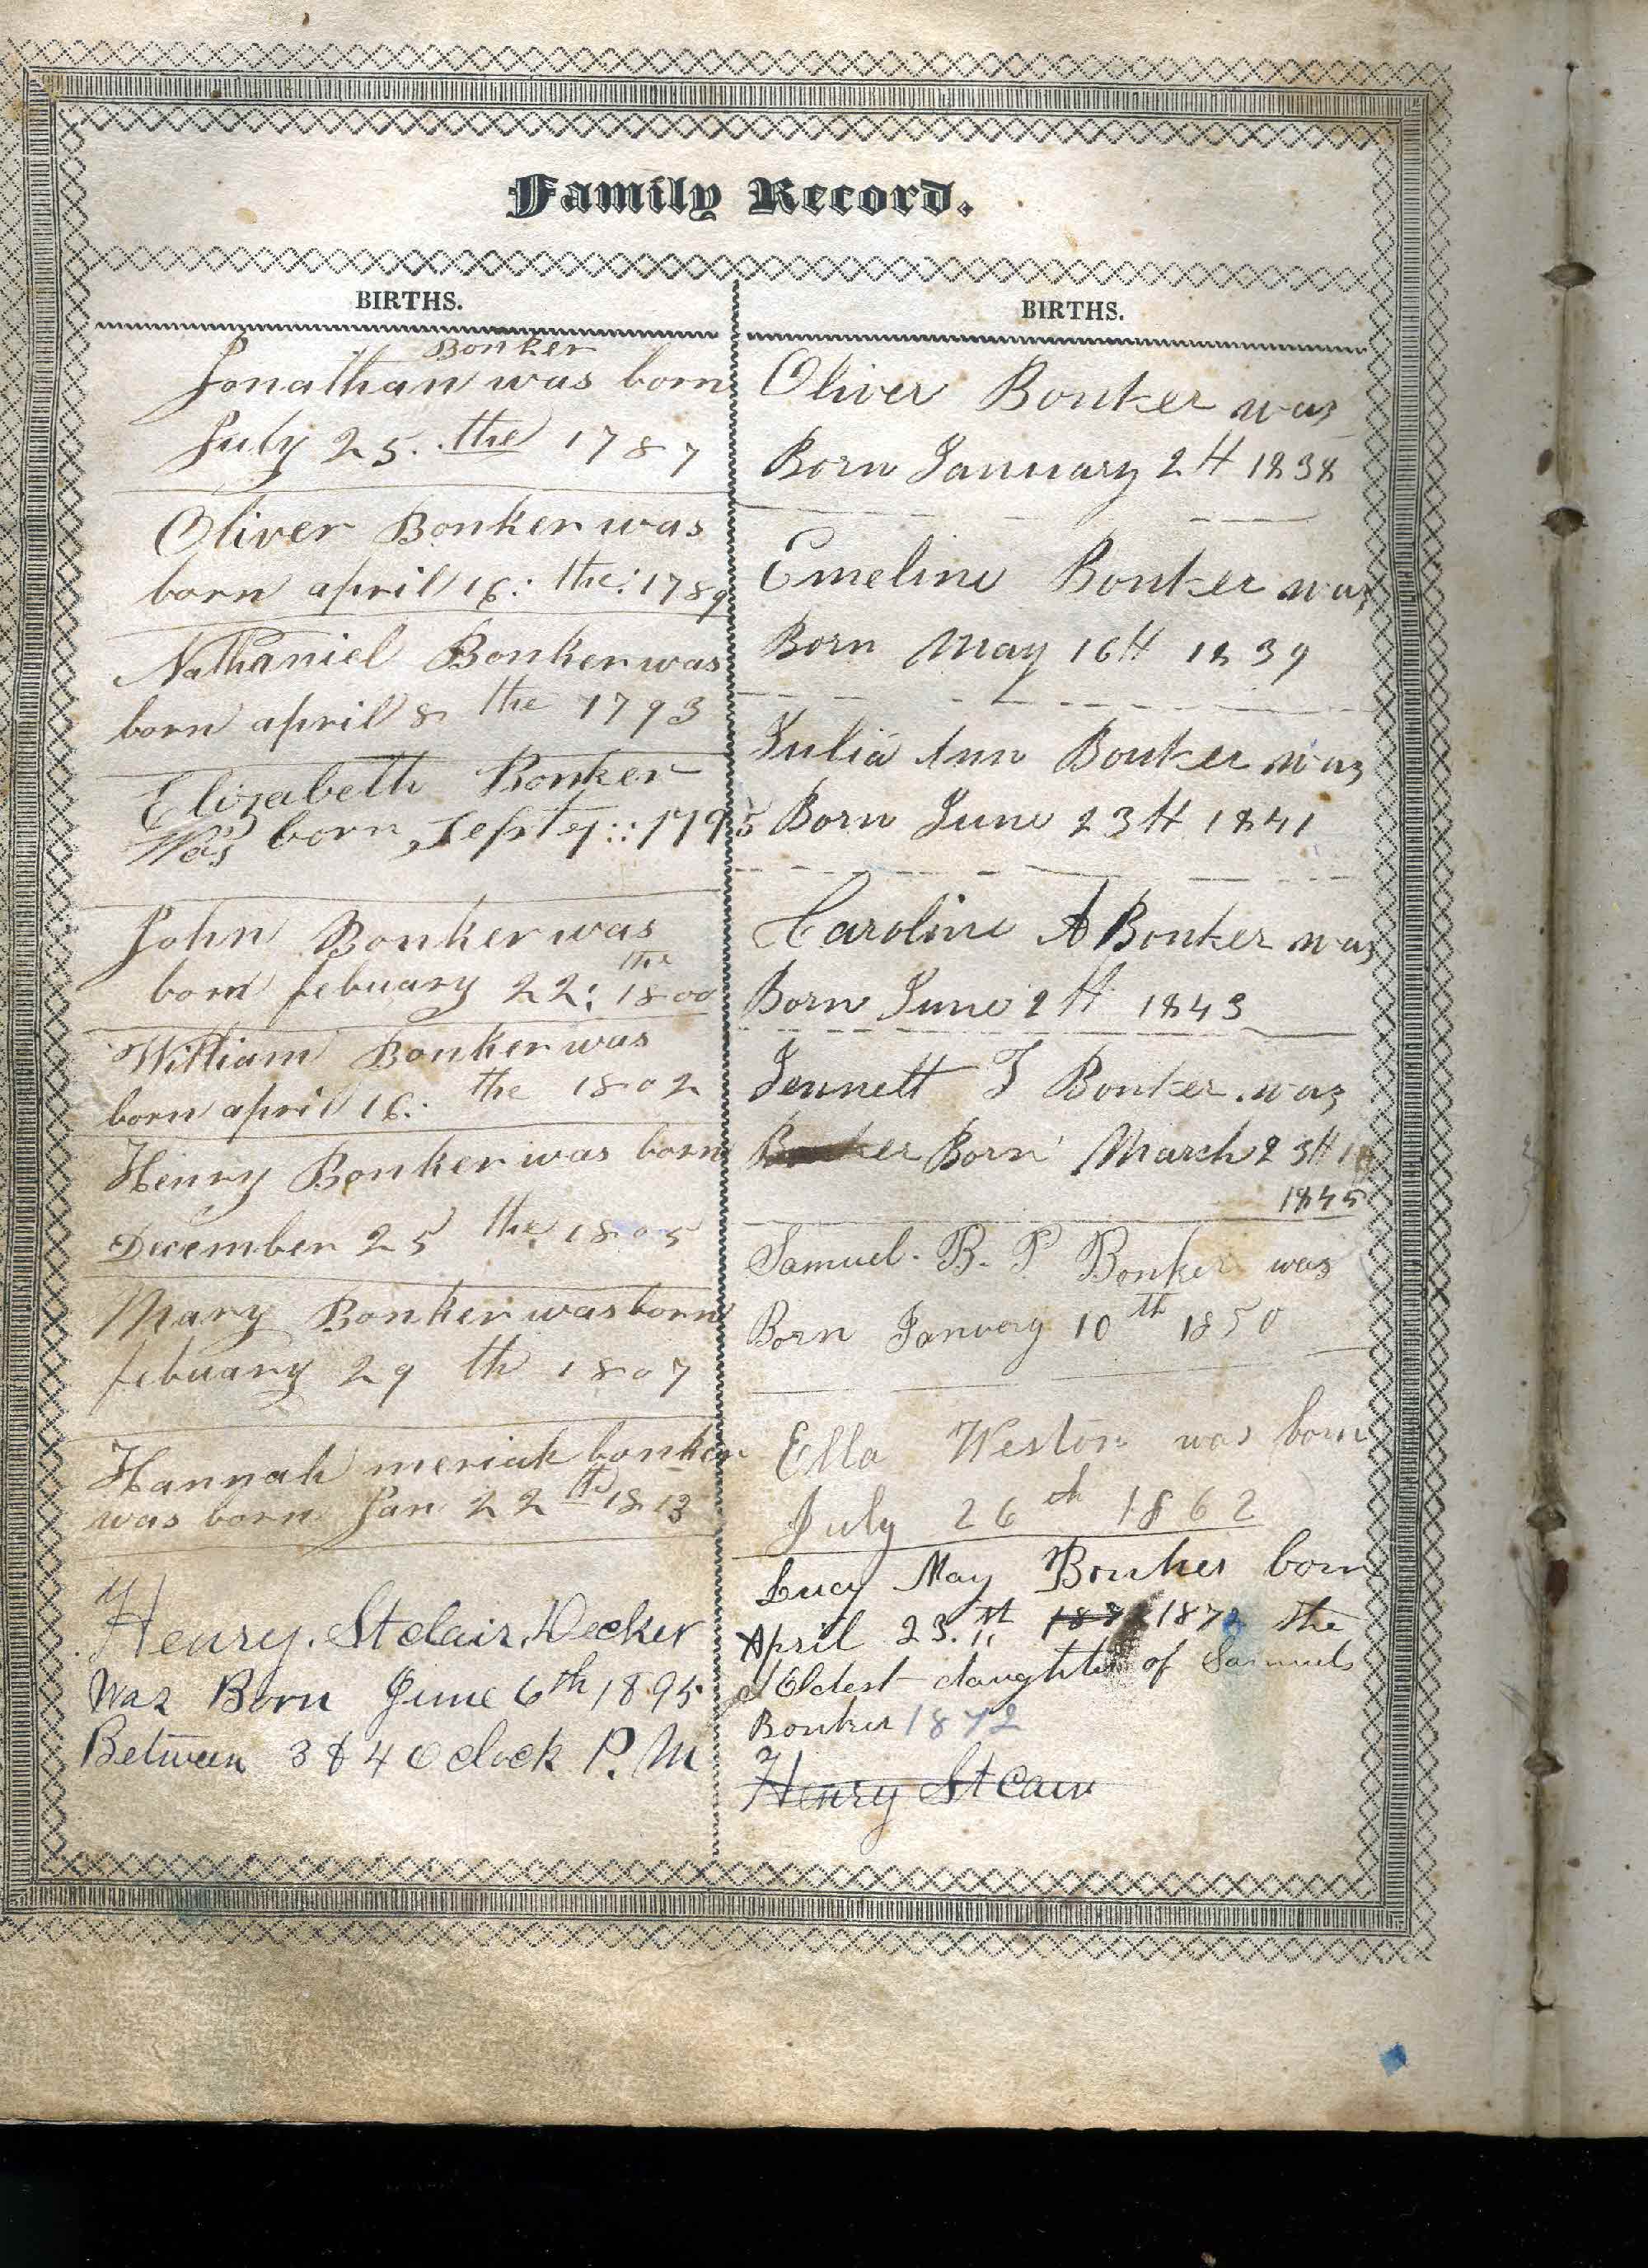 Family Record.
BIRTHS.
Bonker
Jonathan was born
July 25. the 1787
Oliver Bonker was
born april 16: the: 1789
Nathaniel Bonker was
born april 8 the 1793
Elizabeth Bonker
Was born, Sept 7:: 1795
John Bonker was
the
born febuary 22: 1800
William Bonker was
born april 16: the 1802
Henry Bonker was born
December 25 the 1805
Mary Bonker was born
febuary 29 th 1807
Hannah meriah bonker
was born Jan 22 th 1813
Henry. Stclair. Decker
Was Born June 6th 1895.
Between 3 & 4 Oclock P. M
BIRTHS.
Oliver Bonker was
Born January 2th 1838
Emeline Bonker was
Born May 16th 1839
Julia Ann Bonker was
Born June 23th 1841
Caroline A Bonker was
Born June 2th 1843
Jennett T Bonker. was
Born March 23th
1845
Samuel. B. P Bonker was
Born Janvery 10th 1850
Ella Weston was born
July 26th 1862
Lucy May Bonker born
April 23.th 1872 the
Eldest daughter of Samuel
Bonker 1872
Henry St Cair